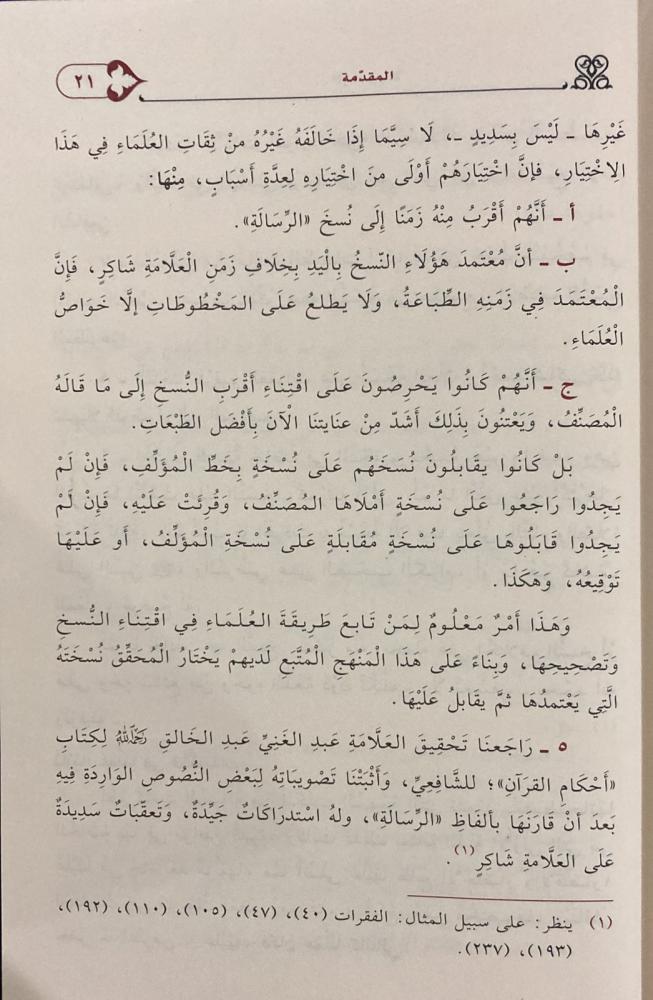 المقدّمة
٢١
غَيْرِهَا ـ لَيْسَ بِسَدِيدٍ ـ، لَا سِيَّمَا إِذَا خَالَفَهُ غَيْرُهُ منْ ثِقَاتِ العُلَمَاءِ فِي هَذَا
الِاخْتِيَارِ، فإنَّ اخْتِيَارَهُمْ أَوْلَى منَ اخْتِيَارِهِ لِعِدَّةِ أَسْبَابٍ، مِنْهَا:
أ ـ أَنَّهُمْ أَقْرَبُ مِنْهُ زَمَنًا إِلَى نُسخَ «الرِّسَالَةِ».
ب ـ أنَّ مُعْتَمَدَ هَؤُلَاءِ النّسخُ بِالْيَدِ بِخِلَافِ زَمَنِ الْعَلَّامَةِ شَاكِرٍ، فَإِنَّ
الْمُعْتَمَدَ فِي زَمَنِهِ الطِّبَاعَةُ، وَلَا يَطلعُ عَلَى المَخْطُوطَاتِ إلَّا خَوَاصُّ
الْعُلَمَاءِ.
ج ـ أَنَّهُمْ كَانُوا يَحْرِصُونَ عَلَى اقْتِنَاءِ أَقْرَبِ النُّسخِ إِلَى مَا قَالَهُ
الْمُصَنِّفُ، وَيَعْتَنُونَ بِذَلِكَ أَشَدّ مِنْ عنايتنَا الْآنَ بِأَفْضَل الطَبْعَاتِ.
بَلْ كَانُوا يقَابلُونَ نُسَخَهُم عَلَى نُسْخَةٍ بِخَطِّ الْمُؤَلِّفِ، فَإِنْ لَمْ
يَجِدُوا رَاجَعُوا عَلَى نُسْخَةٍ أَمْلَاهَا المُصَنِّفُ، وَقُرِئَتْ عَلَيْهِ، فَإِنْ لَمْ
يَجِدُوا قَابَلُوهَا عَلَى نُسْخَةٍ مُقَابلَةٍ عَلَى نُسْخَةِ الْمُؤَلِّفُ، أَو عَلَيْهَا
تَوْقِيعُهُ، وَهَكَذَا.
وَهَذَا أَمْرٌ مَعْلُومٌ لِمَنْ تَابعَ طَرِيقَةَ العُلَمَاءِ فِي اقْتِنَاءِ النُّسخِ
وَتَصْحِيحِهَا، وَبِنَاءً عَلَى هَذَا الْمَنْهَجِ الْمُتَّبَعِ لَدَيهمْ يَخْتَارُ الْمُحَقِّقُ نُسْخَتَهُ
الَّتِي يَعْتمدُهَا ثمَّ يقَابلُ عَلَيْهَا.
٥ ـ رَاجَعنَا تَحْقِيقَ العَلَّامَةِ عبدِ الغَنِيِّ عبدِ الخالقِ رَحِمَهُ اللهُ لِكِتَابِ
«أَحْكَامِ القرَآنِ»؛ للشَّافعِيِّ، وَأَثْبَتْنَا تَصْوِيبَاتِهُ لِبَعْضِ النُّصُوصِ الوَارِدَةِ فِيهِ
بَعدَ أنْ قَارَنَهَا بألفَاظِ «الرِّسَالَةِ»، ولهُ اسْتدرَاكَاتٌ جَيِّدَةٌ، وَتَعقّبَاتٌ سَدِيدَةٌ
عَلَى العَلَّامةِ شَاكِرٍ(١).
(١) ينظر: على سبيل المثال: الفقرات (٤٠)، (٤٧)، (١٠٥)، (١١٠)، (١٩٢)،
(١٩٣)، (٢٣٧).